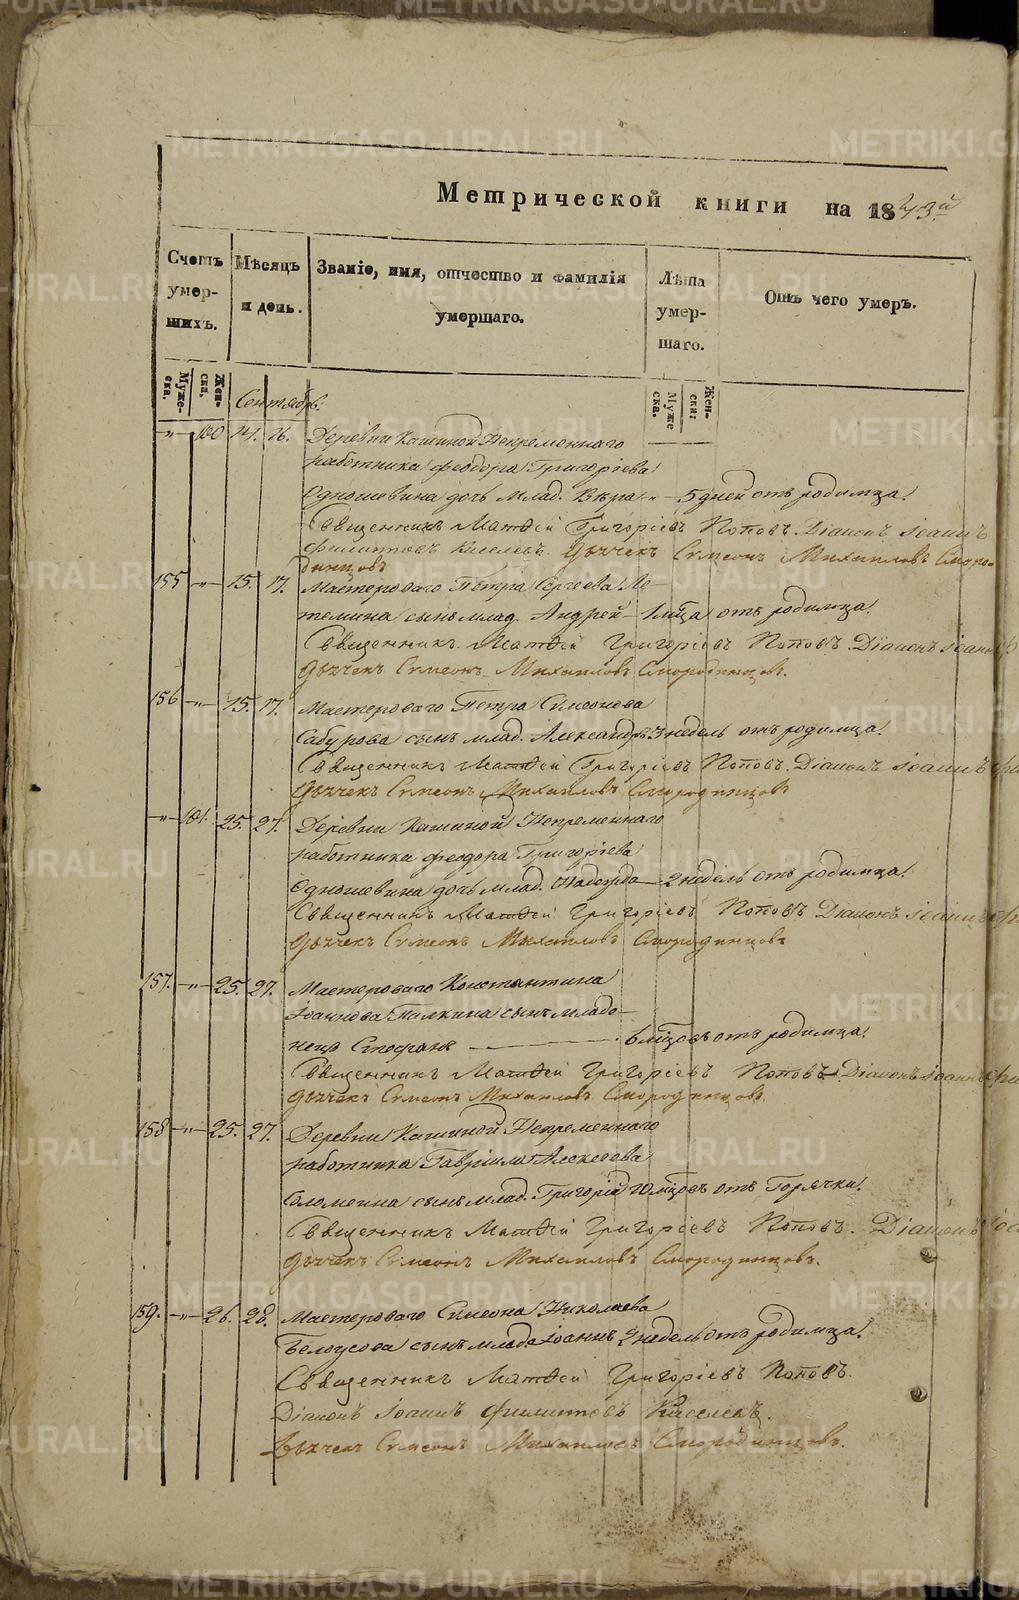 Метрической книги на 1843й
Счетъ умер- шихъ.
Мѣсяцъ и день.
Званіе, имя, отчество и фамилія умершаго.
Лѣта умер- шаго.
Отъ чего умеръ.
Муже- ска. Жен- ска.
Муже ска. Жен- ска:
Сентябрь.
-"- 14. 16. Деревни Кашиной Непременнаго
работника Феодора Григоріева
Одношевина дочь млад. Вѣра -"- 5 дней отъ родимца.
Священникъ Матѳей Григоріевъ Поповъ. Діаконъ Іоаннъ
Филиповъ Киселевъ. Дьячекъ Сѵмеонъ Михаиловъ Сморо-
динцовъ
155 -"- 15. 17. Мастероваго Петра Сергеева Ле-
темина сынъ млад. Андрей - 1 мѣца отъ родимца.
Священникъ Матѳей Григоріевъ Поповъ. Діаконъ Іоаннъ
Дьячекъ Сѵмеонъ Михаиловъ Смородинцовъ.
156 -"- 15. 17. Мастероваго Петра Сѵмеонова
Сабурова сынъ млад. Александръ 3 недель отъ родимца.
Священникъ Матѳей Григоріевъ Поповъ. Діаконъ Іоаннъ
Дьячекъ Сѵмеонъ Михаиловъ Смородинцовъ
-"- 101. 25. 27. Деревни Кашиной Непременнаго
работника Феодора Григоріева
Одношевина дочь млад. Надежда - 2 недель отъ родимца.
Священникъ Матѳей Григоріевъ Поповъ Діаконъ Іоаннъ
Дьячекъ Сѵмеонъ Михаиловъ Смородинцовъ
157. -"- 25. 27. Мастероваго Константина
Іоаннова Палкина сынъ младе-
нецъ Стефанъ - 6 мѣцовъ отъ родимца.
Священникъ Матѳей Григоріевъ Поповъ. Діаконъ Іоаннъ
Дьячекъ Сѵмеонъ Михаиловъ Смородинцовъ
158 -"- 25. 27. Деревни Кашиной Непременнаго
работника Гавріила Алексеева
Соломеина сынъ млад. Григорій 10 мѣцовъ отъ Горячки.
Священникъ Матѳей Григоріевъ Поповъ. Діаконъ
Дьячекъ Сѵмеонъ Михаиловъ Смородинцовъ.
159. -"- 26. 28. Мастероваго Сѵмеона Николаева
Белоусова сынъ млад. Іоаннъ 2 недель отъ родимца.
Священникъ Матѳей Григоріевъ Поповъ.
Діаконъ Іоаннъ Филиповъ Киселевъ.
Дьячекъ Сѵмеонъ Михаиловъ Смородинцовъ.
METRIKI.GASO-URAL.RU